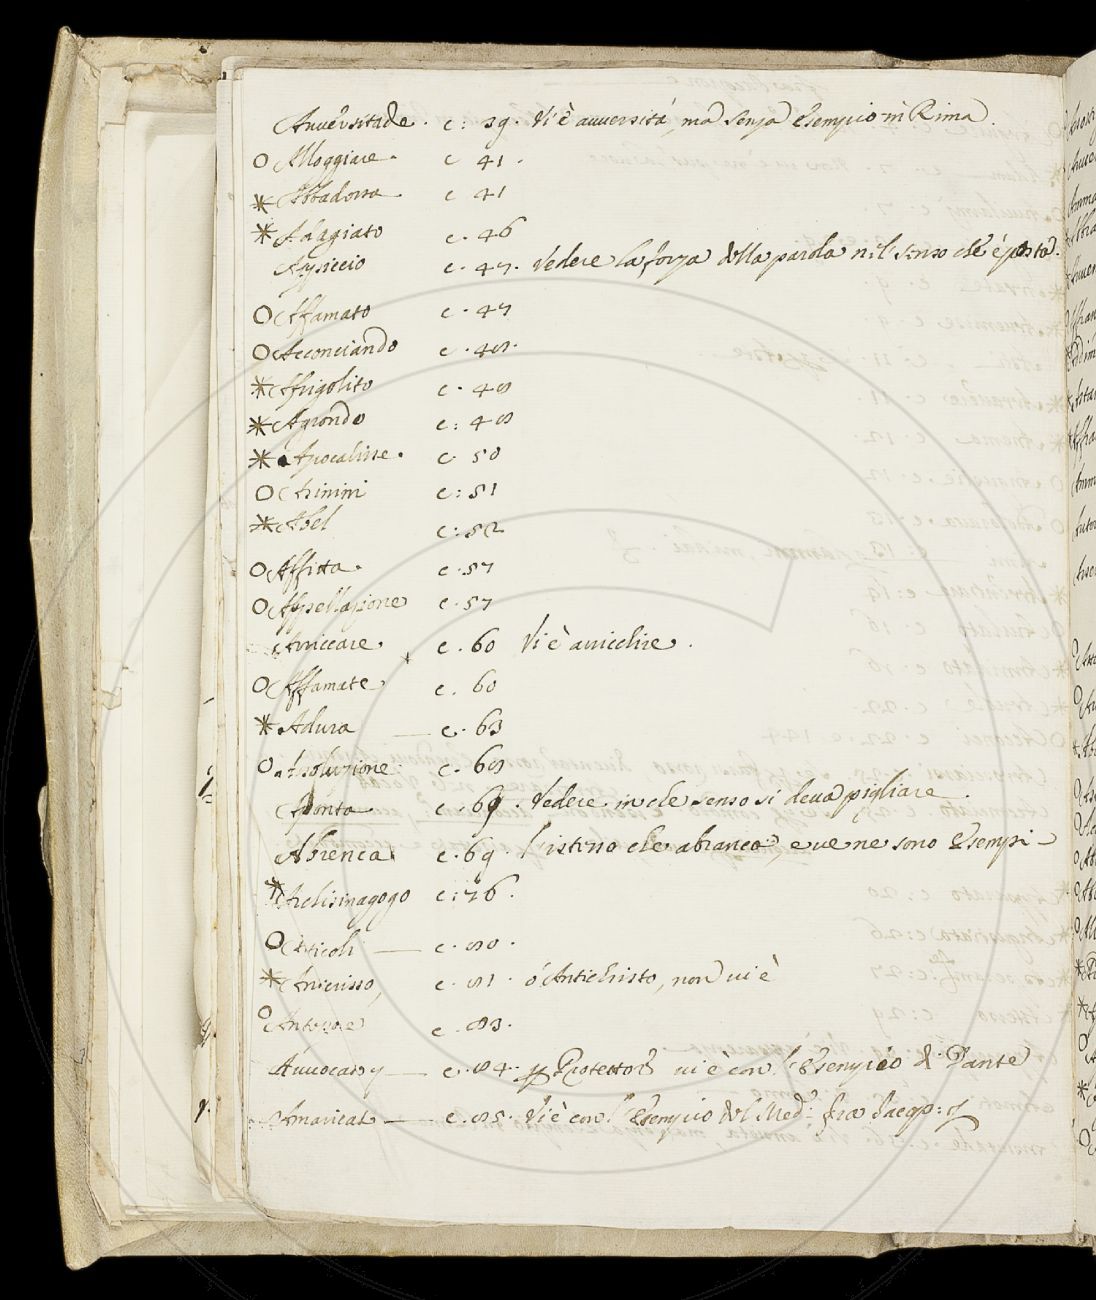 Auuersitade. c: 39. Vi è auuersità, ma senza Esempio in Rima.
O Alloggiare. c 41.
* Abbadessa c 41
* Adagiato c. 46
c. 47. Vedere la forza della parola nel senso che è posta.
O Affamato c. 47
O Acconciando c. 48.
* Affigolito c. 48
* Agrondo c: 48
* Apocalisse. c 50
O Arimini c: 51
* Abel c: 52
O Affitta. c. 57
O Appellazione c. 57
Arriccare. c. 60 Vi è arricchire.
O Affamate c. 60
* Adura c. 63
O Assoluzione c. 68
Aponta c. 69. Vedere in che senso si deua pigliare.
Abrenca c. 69. L'istesso che abranca, e ue ne sono Esempi
* Archisinagogo c: 76.
O Articoli c. 80.
* Anicrisso, c. 81. ò Antichristo, non ui è
O c. 83.
Auuocato c. 84. ui è con l'Esempio di Dante
Amaricat c. 85. Vi è con l'Esempio del Med: fra Iacop: